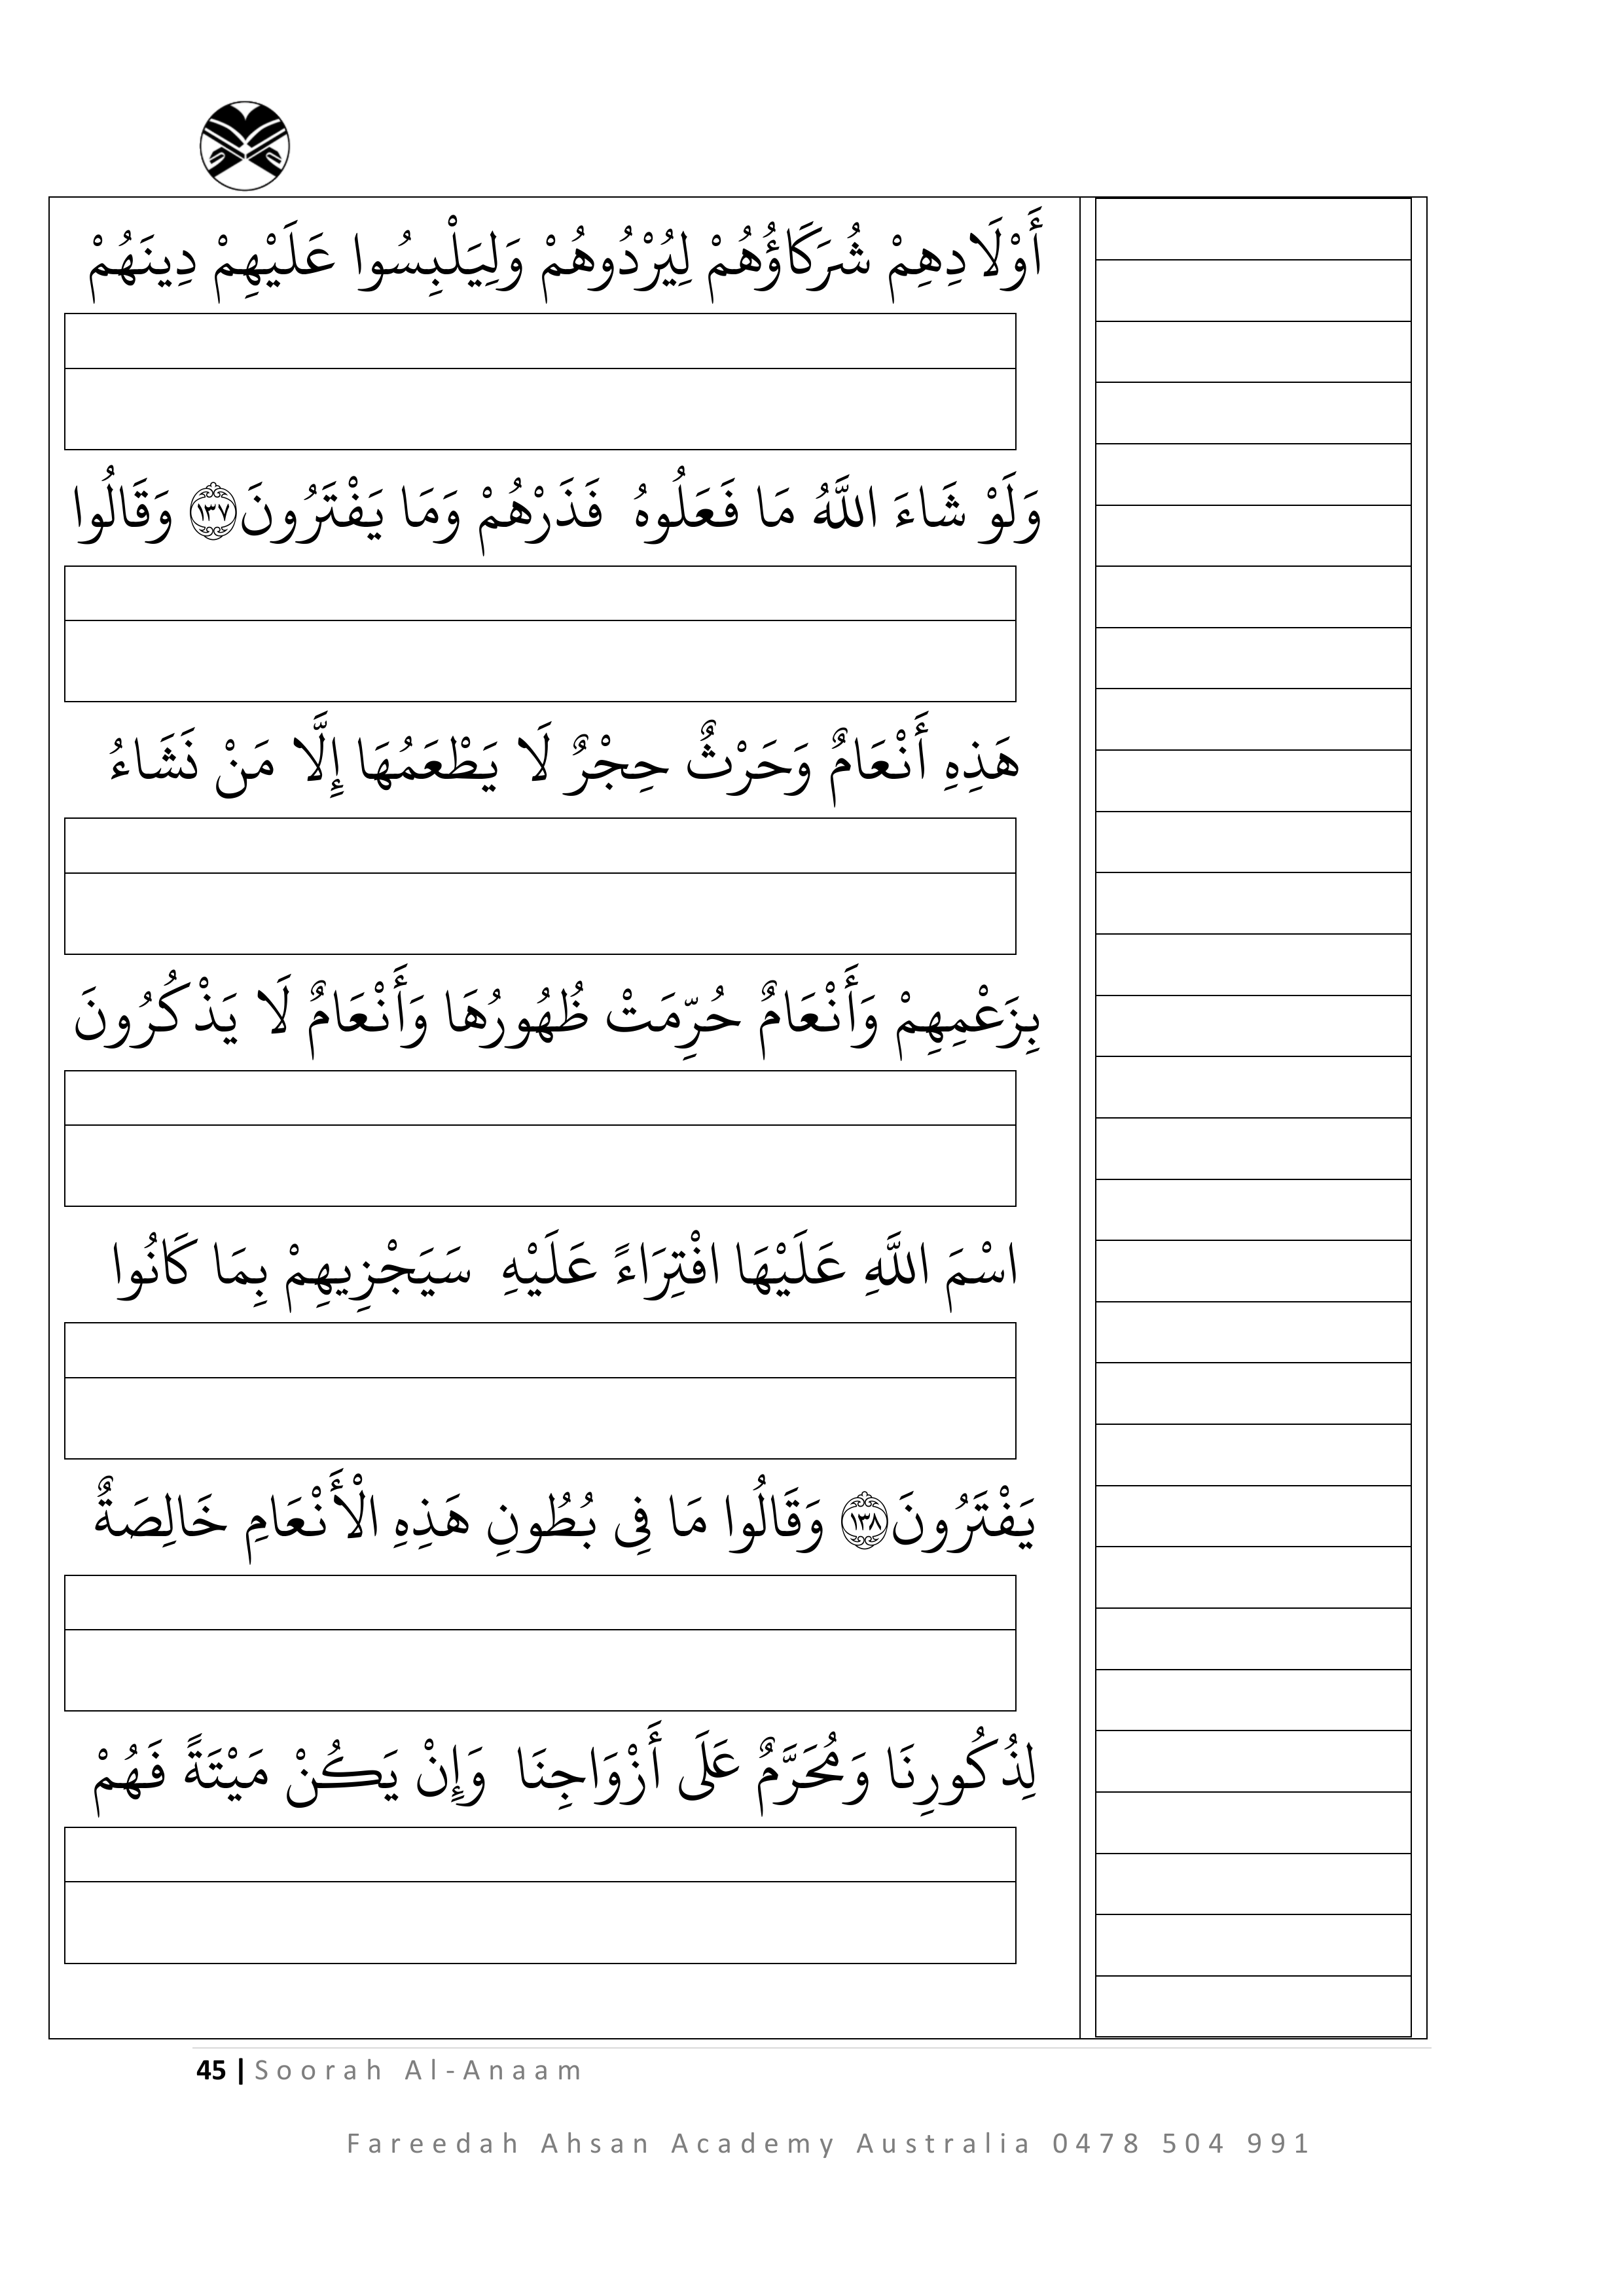 أَوْلَادِهِمْ شُرَكَاؤُهُمْ لِيُرْدُوهُمْ وَلِيَلْبِسُوا عَلَيْهِمْ دِينَهُمْ
وَلَوْ شَاءَ اللَّهُ مَا فَعَلُوهُ فَذَرْهُمْ وَمَا يَفْتَرُونَ ﴿١٣٧﴾ وَقَالُوا
هَذِهِ أَنْعَامٌ وَحَرْثٌ حِجْرٌ لَا يَطْعَمُهَا إِلَّا مَنْ نَشَاءُ
بِزَعْمِهِمْ وَأَنْعَامٌ حُرِّمَتْ ظُهُورُهَا وَأَنْعَامٌ لَا يَذْكُرُونَ
اسْمَ اللَّهِ عَلَيْهَا افْتِرَاءً عَلَيْهِ سَيَجْزِيهِمْ بِمَا كَانُوا
يَفْتَرُونَ ﴿١٣٨﴾ وَقَالُوا مَا فِي بُطُونِ هَذِهِ الْأَنْعَامِ خَالِصَةٌ
لِذُكُورِنَا وَمُحَرَّمٌ عَلَى أَزْوَاجِنَا وَإِنْ يَكُنْ مَيْتَةً فَهُمْ
45 | Soorah Al-Anaam
Fareedah Ahsan Academy Australia 0478 504 991